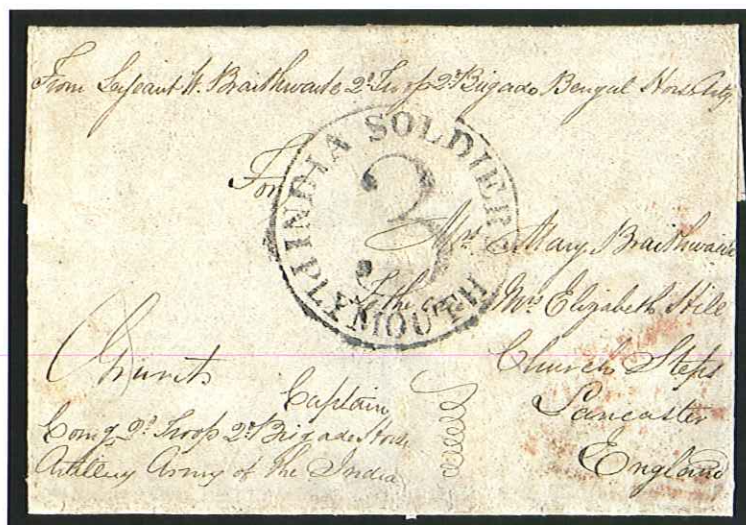 From Serjeant W. Braithwaite 2d Troop 2d Brigade Bengal Horse Arty
INDIA SOLDIER
3
PLYMOUTH
For
Mrs Mary Braithwaite
To the care Mrs Elizabeth Hill
Church Steps
Lancaster
England
Captain
Comg 2d Troop 2d Brigade Horse
Artillery Army of the India